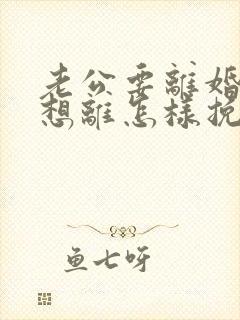 老公要離婚
想離怎樣挽
鱼七呀